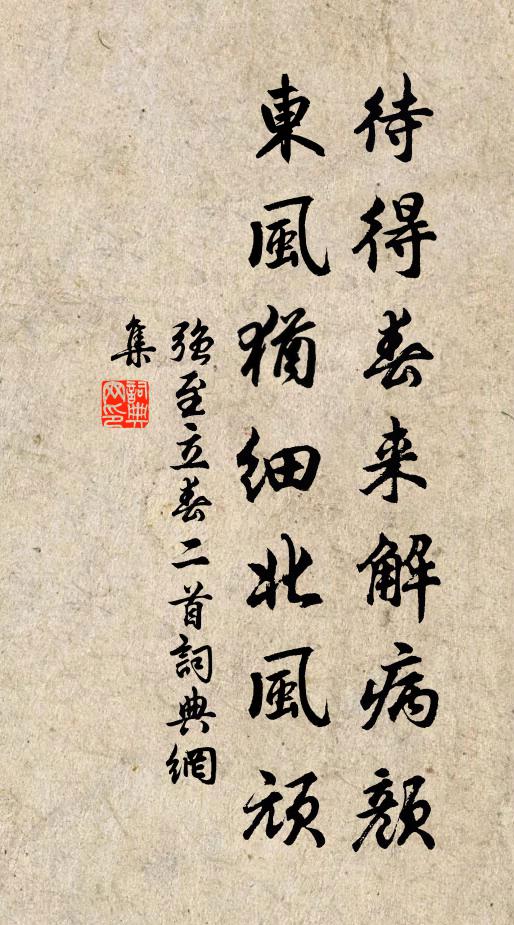 待得春来解病顏
東風猶細北風頑
强至立春二首詞典網
集
詞典
网印